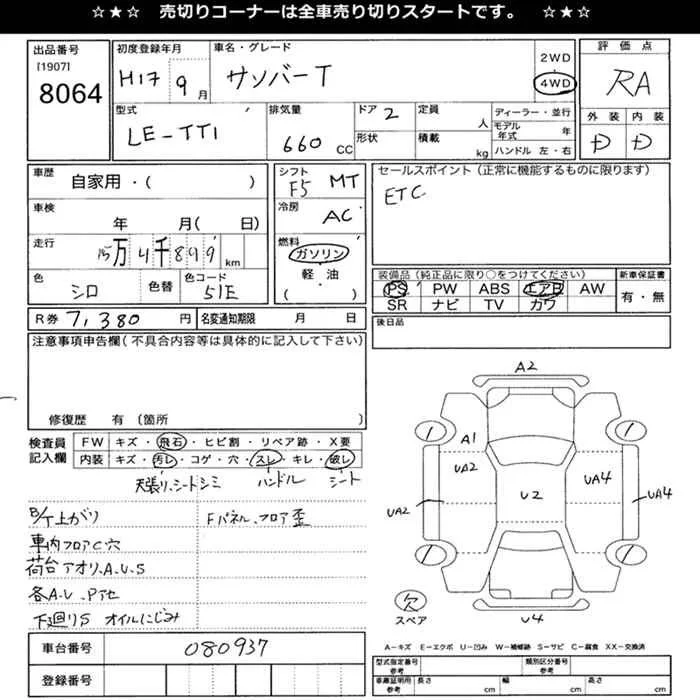 ☆★☆ 売切りコーナーは全車売り切りスタートです。 ☆★☆
出品番号
[1907]
8064
初度登録年月
H17 9月
車名・グレード
サンバーT
2WD
4WD
評価点
RA
外装 内装
D D
型式
LE-TT1
排気量
660 CC
ドア 2
形状
定員 人
積載 kg
ディーラー・並行
モデル年式 年
ハンドル 左・右
車歴
自家用・( )
車検
年 月( 日)
走行
15万4千899km
色
シロ
色替
色コード
51E
シフト
F5 MT
冷房
AC
燃料
ガソリン
軽・油
( )
セールスポイント(正常に機能するものに限ります)
ETC
装備品(純正品に限り○をつけてください)
PS PW ABS エアB AW
SR ナビ TV カワ
新車保証書
有・無
R券 7,380円
名変通知期限 月 日
後日品
注意事項申告欄(不具合内容等は具体的に記入して下さい)
修復歴 有(箇所 )
検査員記入欄
FW キズ・飛石・ヒビ割・リペア跡・X要
内装 キズ・汚レ・コゲ・穴・スレ・キレ・破レ
天張リ、シートシミ ハンドル シート
B/T上がり
Fパネル、フロア歪
車内フロアC穴
荷台アオリ、A.U.S
各A.U.P他
下廻りS オイルにじみ
A2
A1
UA2
UA2
U2
UA4
UA4
U4
欠
スペア
A-キズ E-エクボ U-凹み W-補修跡 S-サビ C-腐食 XX-交換済
車台番号
080937
登録番号
型式指定番号 参考
類別区分番号 参考
車庫証明用 参考
長さ cm
幅 cm
高さ cm